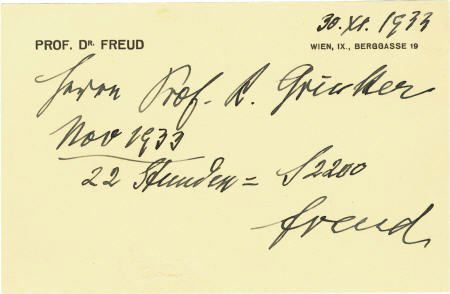 30.XI.1933
PROF. DR. FREUD
WIEN, IX., BERGGASSE 19
Herrn Prof. R. Grinker
Nov 1933
22 Stunden = S 2200
Freud